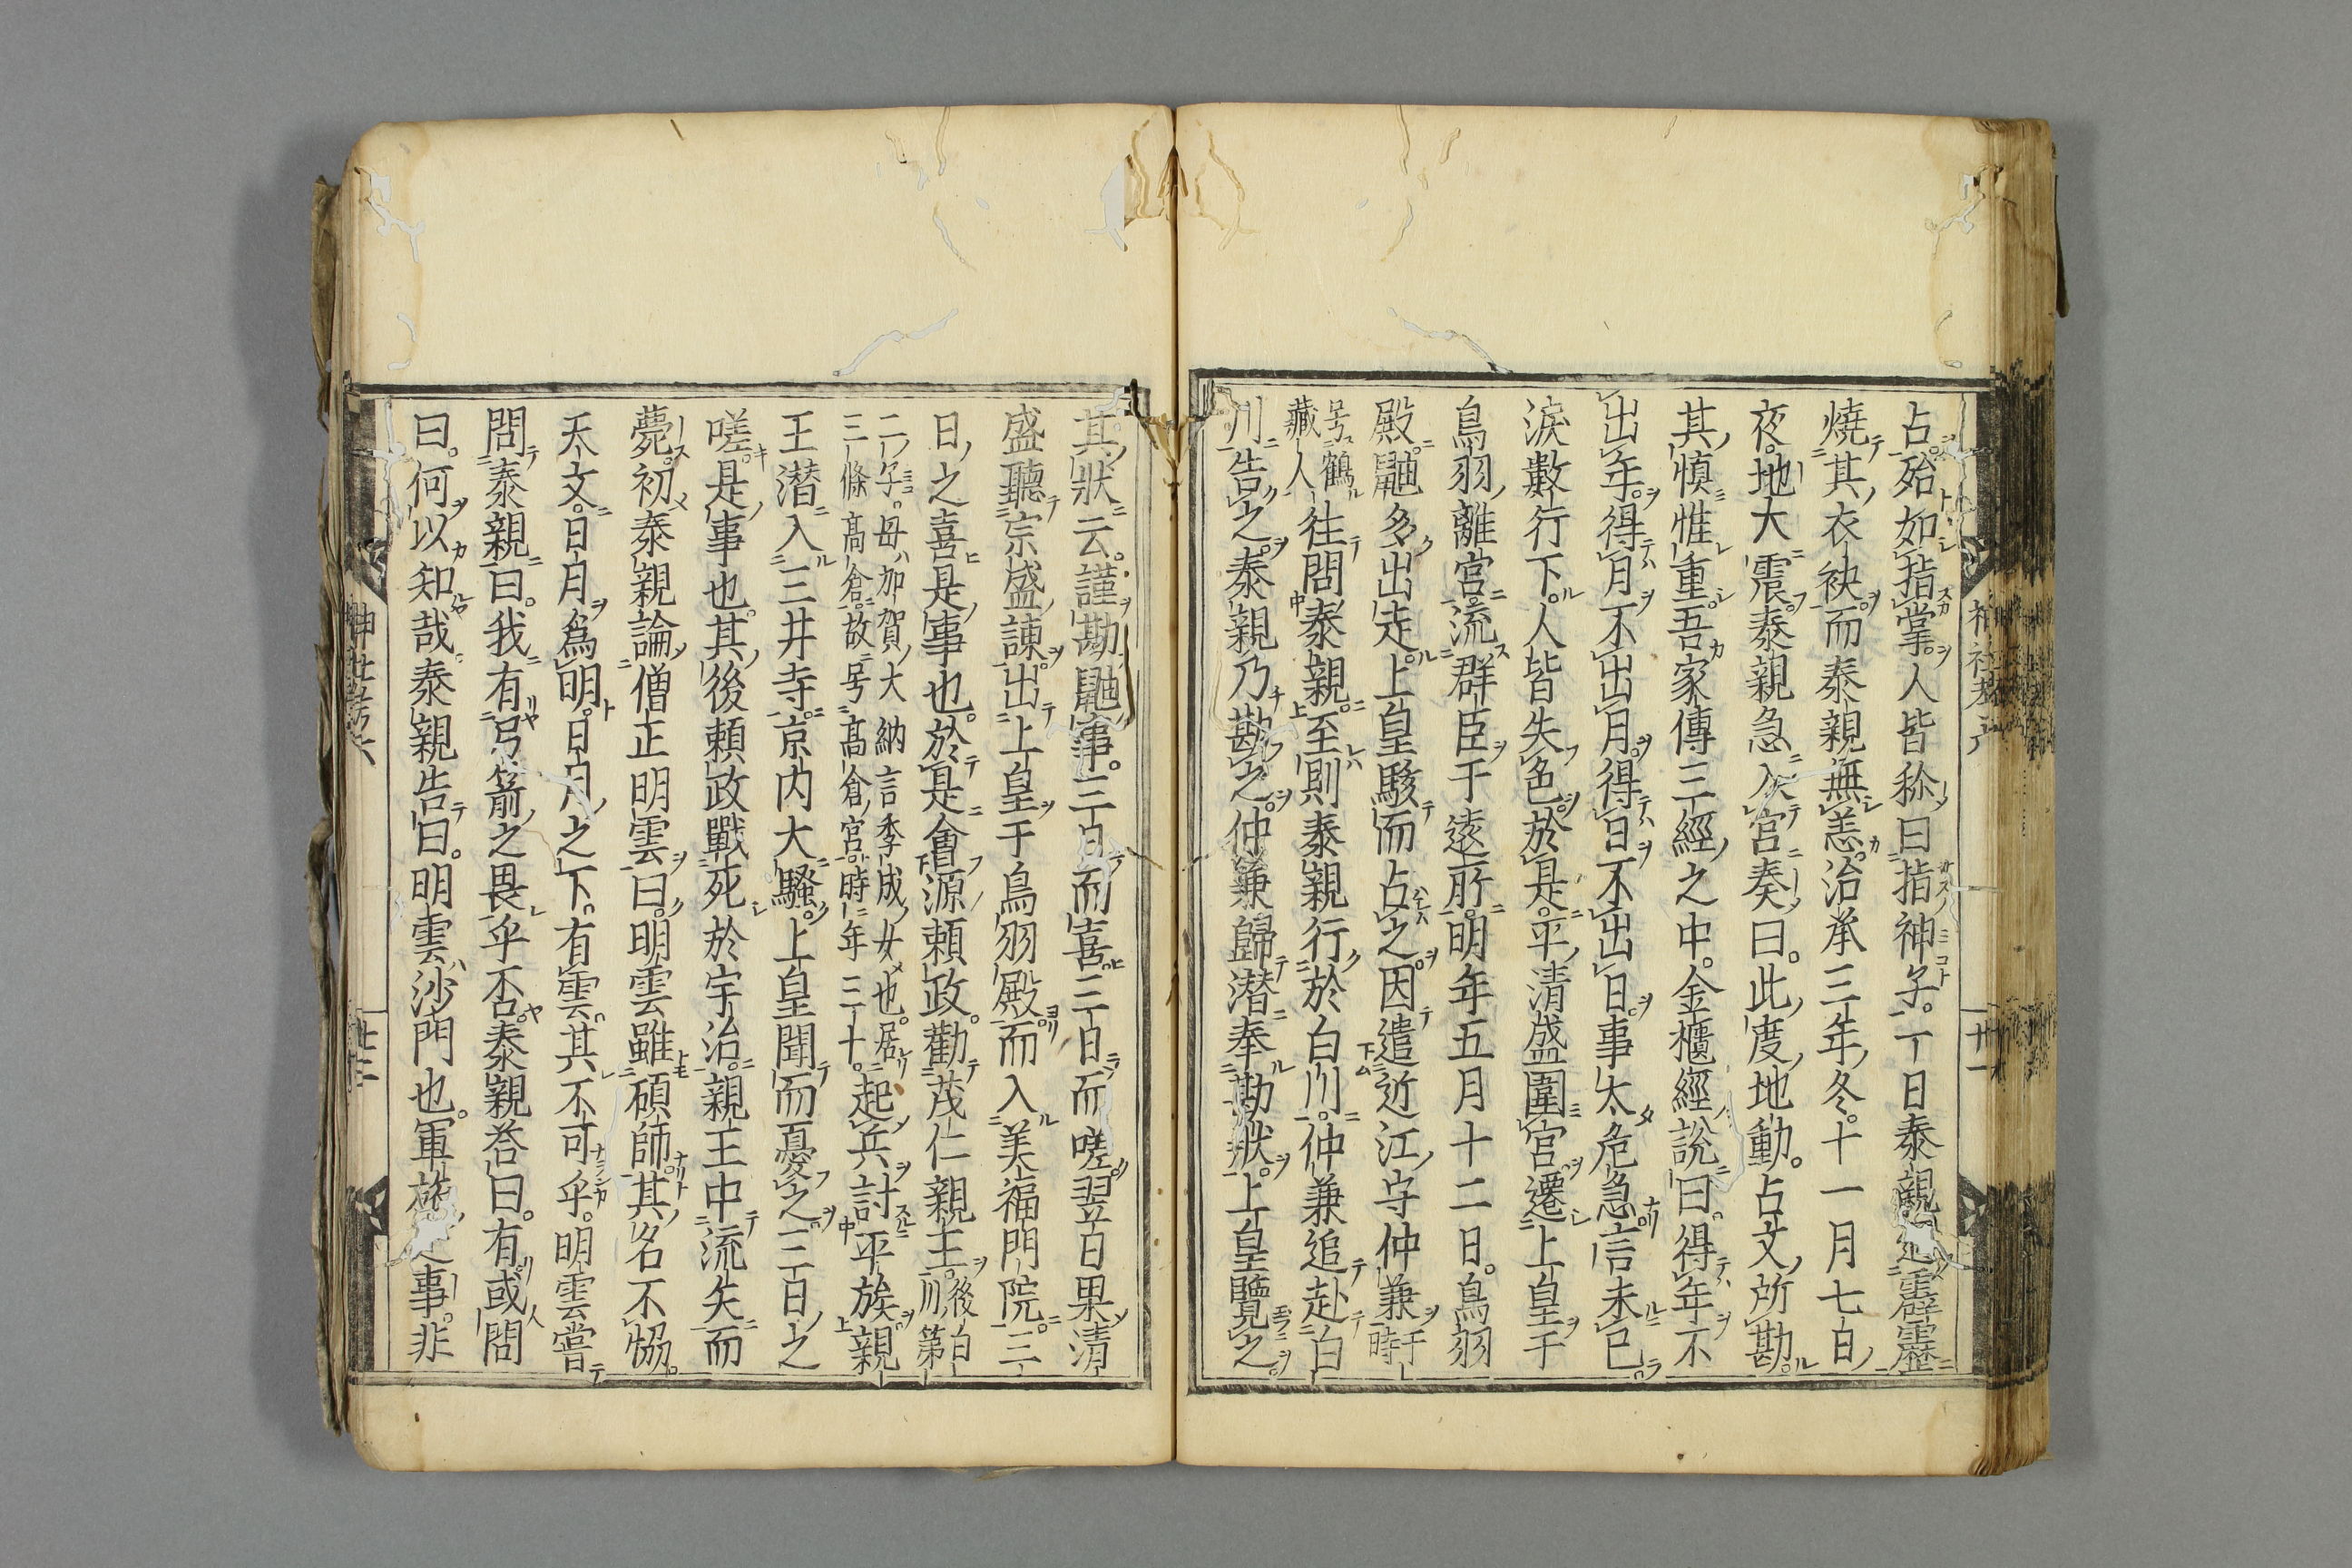 占。殆如指掌。人皆称曰指神子。一日泰親遭霹靂
燒其衣袂。而泰親無恙。治承三年冬。十一月七日
夜。地大震。泰親急入宮奏曰。此度地動。占文所勘。
其慎惟重。吾家傳三經之中。金櫃經説曰。得年不
出年。得月不出月。得日不出日。事太危急。言未已
淚數行下。人皆失色。於是。平清盛圍宮。遷上皇于
鳥羽離宮。流群臣于遠所。明年五月十二日。鳥羽
殿。鼬多出走。上皇駭而占之。因遣近江守仲兼時于
号鶴
藏人往問泰親。至則泰親行於白川。仲兼追赴白
川告之。泰親乃勘之。仲兼歸潜奉勘狀。上皇覽之。
神社考六
廿一
其狀云。謹勘鼬事。三日而喜三日而嗟。翌日果清
盛聽宗盛諫。出上皇于鳥羽殿而入美福門院。三
日之喜是事也。於是會源頼政。勸茂仁親王。後白川第
二子。母加賀大納言季成女也。居
三條高倉。故号高倉宮。時年三十。起兵討平族。親
王潜入三井寺。京内大騒。上皇聞而憂之。三日之
嗟。是事也。其後頼政戰死於宇治。親王中流矢而
薨。初泰親論僧正明雲曰。明雲雖碩師。其名不恊。
天文。日月爲明。日月之下。有雲。其不可乎。明雲嘗
問泰親曰。我有弓箭之畏乎否。泰親荅曰。有。或問
曰。何以知哉。泰親告曰。明雲沙門也。軍旅之事。非
神社考六
廿二